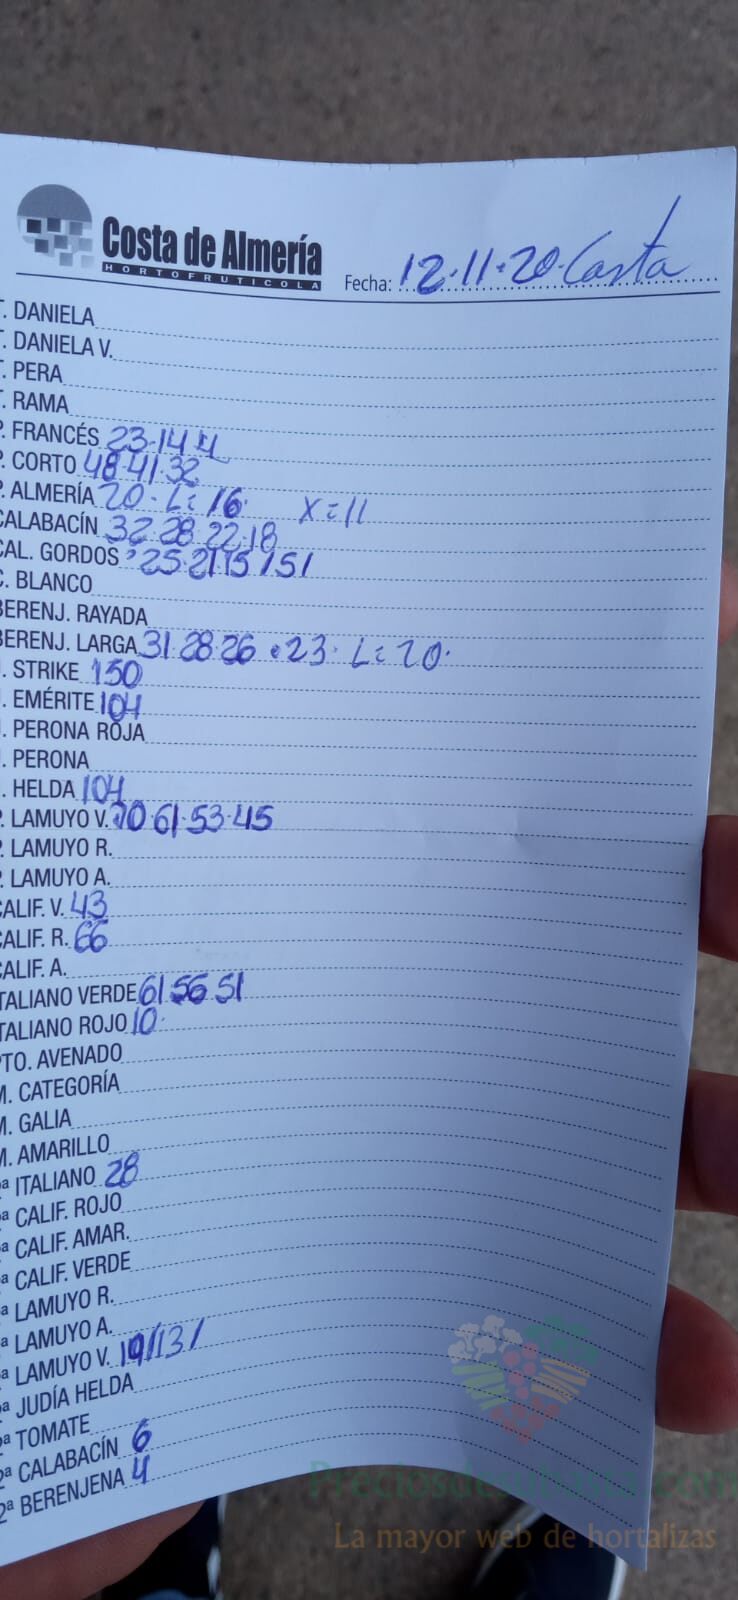 Costa de Almería
HORTOFRUTICOLA
Fecha: 12.11.20. Costa
T. DANIELA
T. DANIELA V.
T. PERA
T. RAMA
P. FRANCÉS 23.14 4
P. CORTO 48.41.32
P. ALMERÍA 20. L=16 X=11
CALABACÍN 32.28.22.18
CAL. GORDOS 25.21.15/5/
C. BLANCO
BERENJ. RAYADA
BERENJ. LARGA 31.28.26.23. L=20.
J. STRIKE 150
J. EMÉRITE 104
J. PERONA ROJA
J. PERONA
J. HELDA 104
P. LAMUYO V. 70 61.53.45
P. LAMUYO R.
P. LAMUYO A.
CALIF. V. 43
CALIF. R. 66
CALIF. A.
ITALIANO VERDE 61 56 51
ITALIANO ROJO 10
PTO. AVENADO
M. CATEGORÍA
M. GALIA
M. AMARILLO
ª ITALIANO 28
ª CALIF. ROJO
ª CALIF. AMAR.
ª CALIF. VERDE
ª LAMUYO R.
ª LAMUYO A.
ª LAMUYO V. 19/13/
ª JUDÍA HELDA
ª TOMATE
2ª CALABACÍN 6
2ª BERENJENA 4
Preciosdesubasta.com
La mayor web de hortalizas